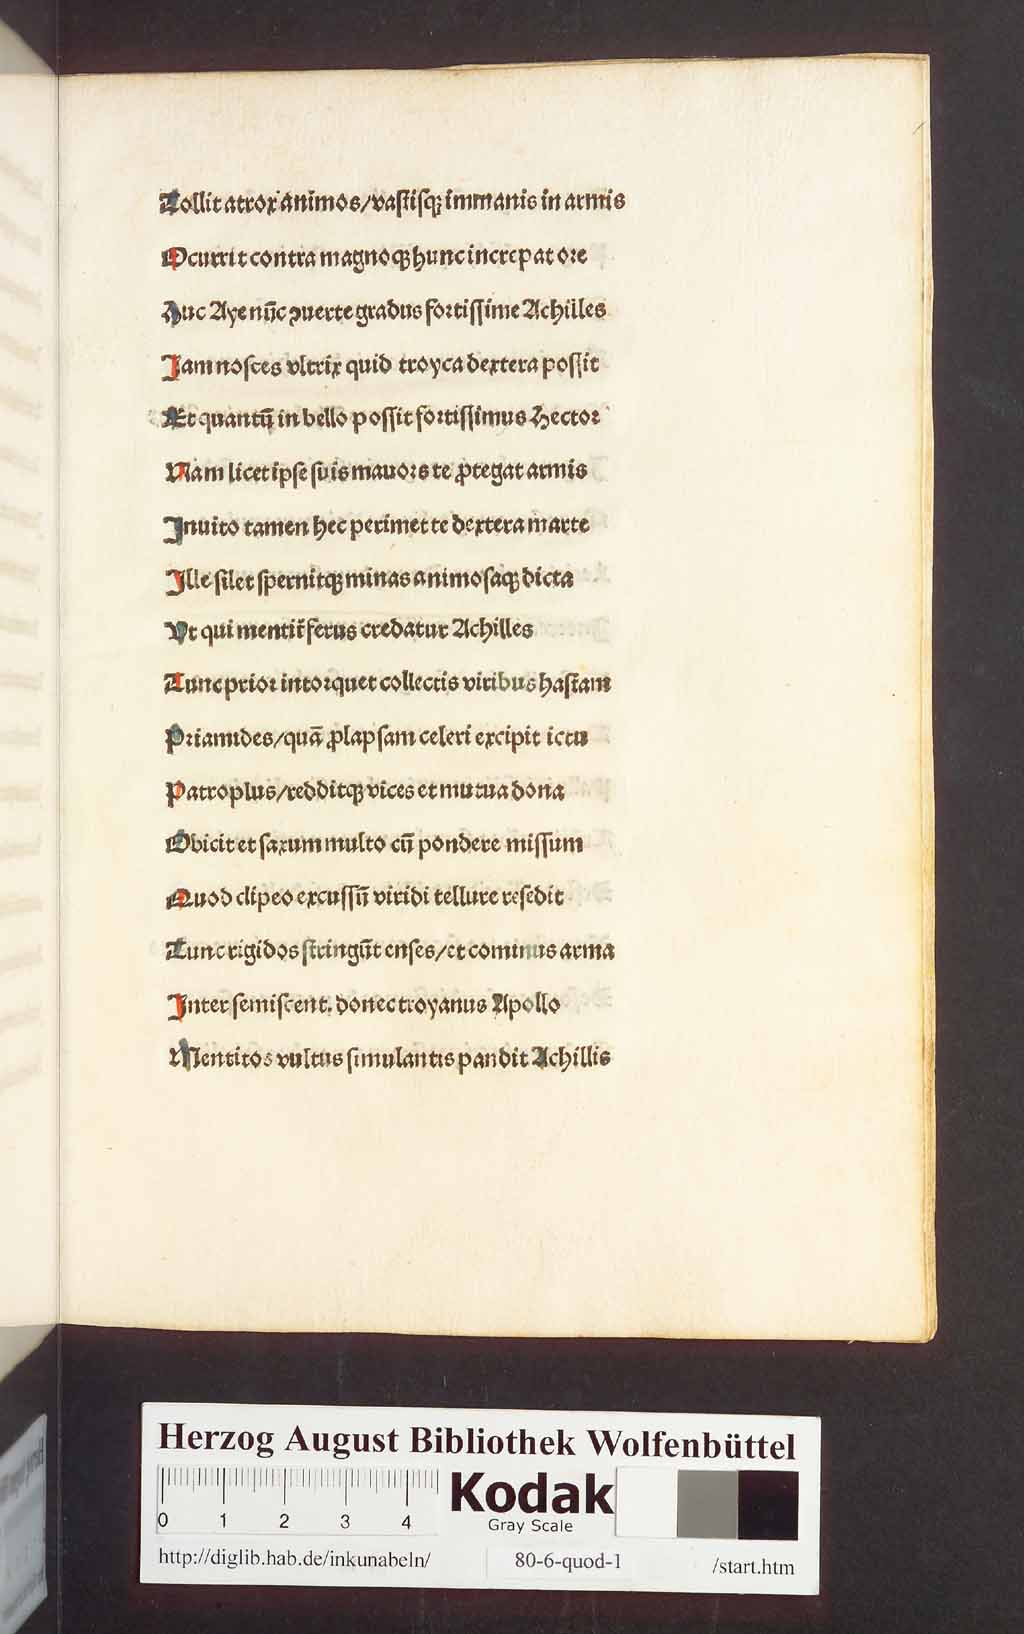 Tollit atrox animos/vastisqꝫ immanis in armis
Ocurrit contra magnoqꝫ hunc increpat ore
Huc Aye nūc ꝯuerte gradus fortissime Achilles
Jam nosces vltrix quid troyca dextera possit
Et quantū in bello possit fortissimus Hector
Nam licet ipse suis mauors te ꝓtegat armis
Jnuito tamen hec perimet te dextera marte
Jlle silet spernitqꝫ minas animosaqꝫ dicta
Vt qui mentit᷑ ferus credatur Achilles
Tunc prior intorquet collectis viribus hastam
Priamides/quā ꝓlapsam celeri excipit ictu
Patroplus/redditqꝫ vices et mutua dona
Obicit et saxum multo cū pondere missum
Quod clipeo excussū viridi tellure resedit
Tunc rigidos stringūt enses/et cominus arma
Jnter se miscent. donec troyanus Apollo
Mentitos vultus simulantis pandit Achillis
Herzog August Bibliothek Wolfenbüttel
0 1 2 3 4
Kodak
Gray Scale
http://diglib.hab.de/inkunabeln/ 80-6-quod-1 /start.htm